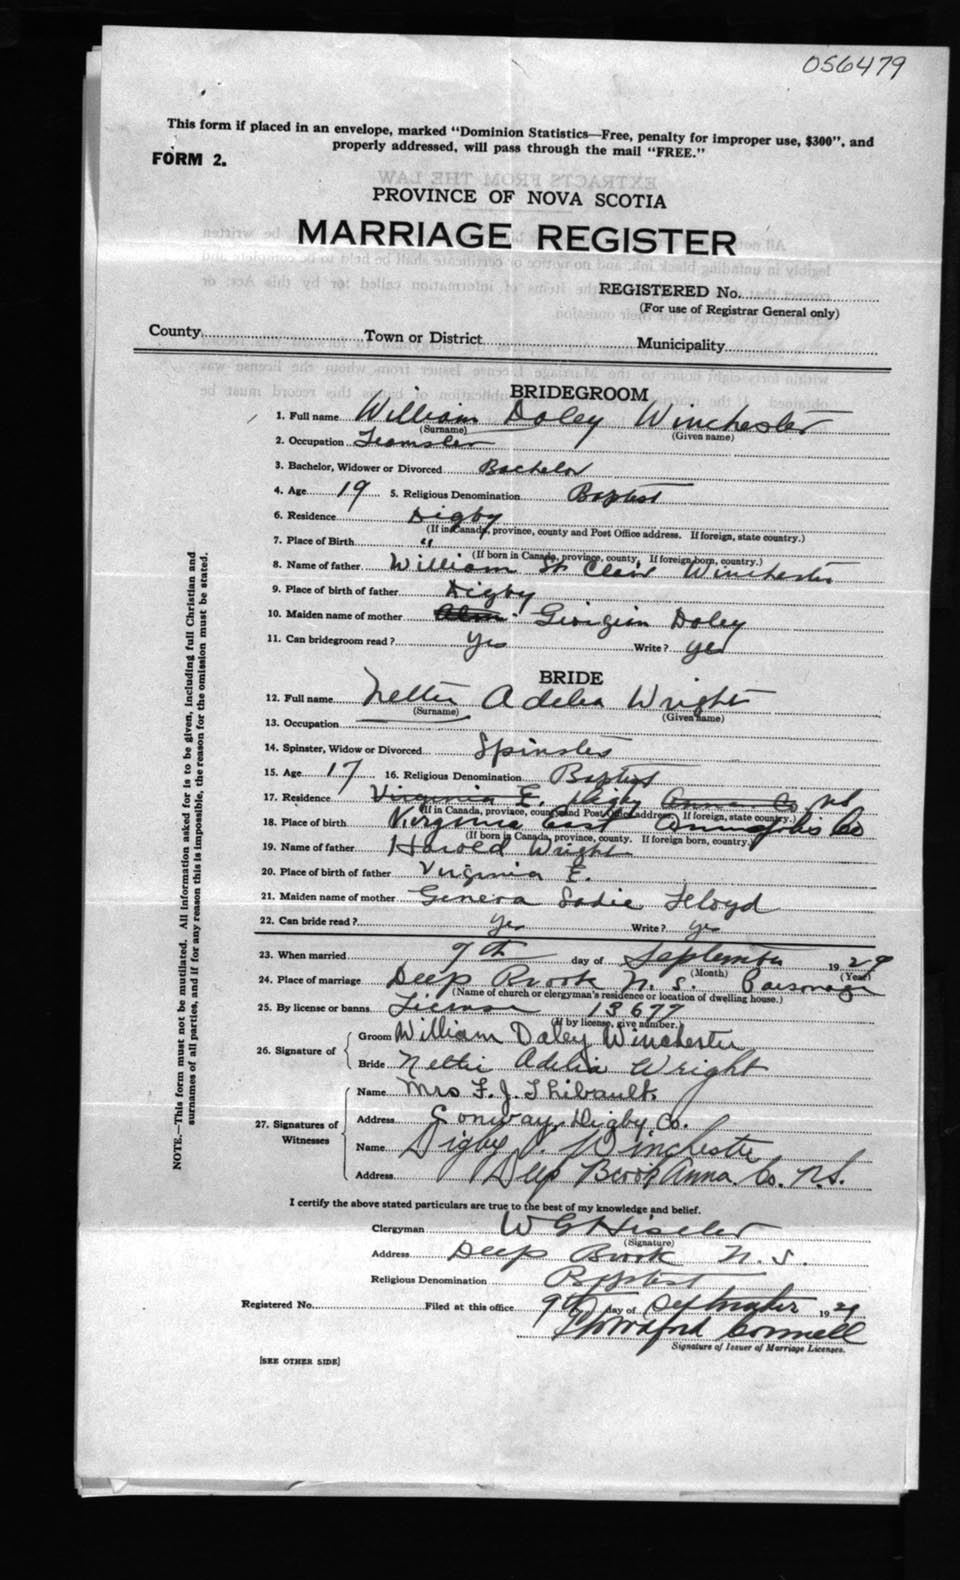 056479
This form if placed in an envelope, marked "Dominion Statistics—Free, penalty for improper use, $300", and
properly addressed, will pass through the mail "FREE."
FORM 2.
PROVINCE OF NOVA SCOTIA
MARRIAGE REGISTER
REGISTERED No.
(For use of Registrar General only)
County Town or District Municipality
BRIDEGROOM
1. Full name William Daley Winchester
(Surname) (Given name)
2. Occupation Teamster
3. Bachelor, Widower or Divorced Bachelor
4. Age 19 5. Religious Denomination Baptist
6. Residence Digby
(If in Canada, province, county and Post Office address. If foreign, state country.)
7. Place of Birth "
(If born in Canada, province, county, If foreign born, country.)
8. Name of father William St Clair Winchester
9. Place of birth of father Digby
10. Maiden name of mother Alma Daley
11. Can bridegroom read? Yes Write? yes
BRIDE
12. Full name Nettie Adelia Wright
(Surname) (Given name)
13. Occupation
14. Spinster, Widow or Divorced Spinster
15. Age 17 16. Religious Denomination Baptist
17. Residence Virginia E. Digby Anna. Co NS
(If in Canada, province, county and Post Office address. If foreign, state country.)
18. Place of birth Virginia East Annapolis Co
(If born in Canada, province, county. If foreign born, country.)
19. Name of father Harold Wright
20. Place of birth of father Virginia E.
21. Maiden name of mother Genera Sadie Floyd
22. Can bride read? Yes Write? yes
23. When married 9th day of September 1929
(Month) (Year)
24. Place of marriage Deep Brook N. S. Parsonage
(Name of church or clergyman's residence or location of dwelling house.)
25. By license or banns License 13677
(If by license, give number.)
26. Signature of Groom William Daley Winchester
Bride Nettie Adelia Wright
27. Signatures of Witnesses Name Mrs F. J. Thibault
Address Conway, Digby Co.
Name Digby Winchester
Address Deep Brook Anna. Co. N.S.
I certify the above stated particulars are true to the best of my knowledge and belief.
Clergyman W G Hisler
(Signature)
Address Deep Brook N. S.
Religious Denomination Baptist
Registered No. Filed at this office 9th day of September 1929
Connell
Signature of Issuer of Marriage Licenses.
[SEE OTHER SIDE]
NOTE.—This form must not be mutilated. All information asked for is to be given, including full Christian and
surnames of all parties, and if for any reason this is impossible, the reason for the omission must be stated.